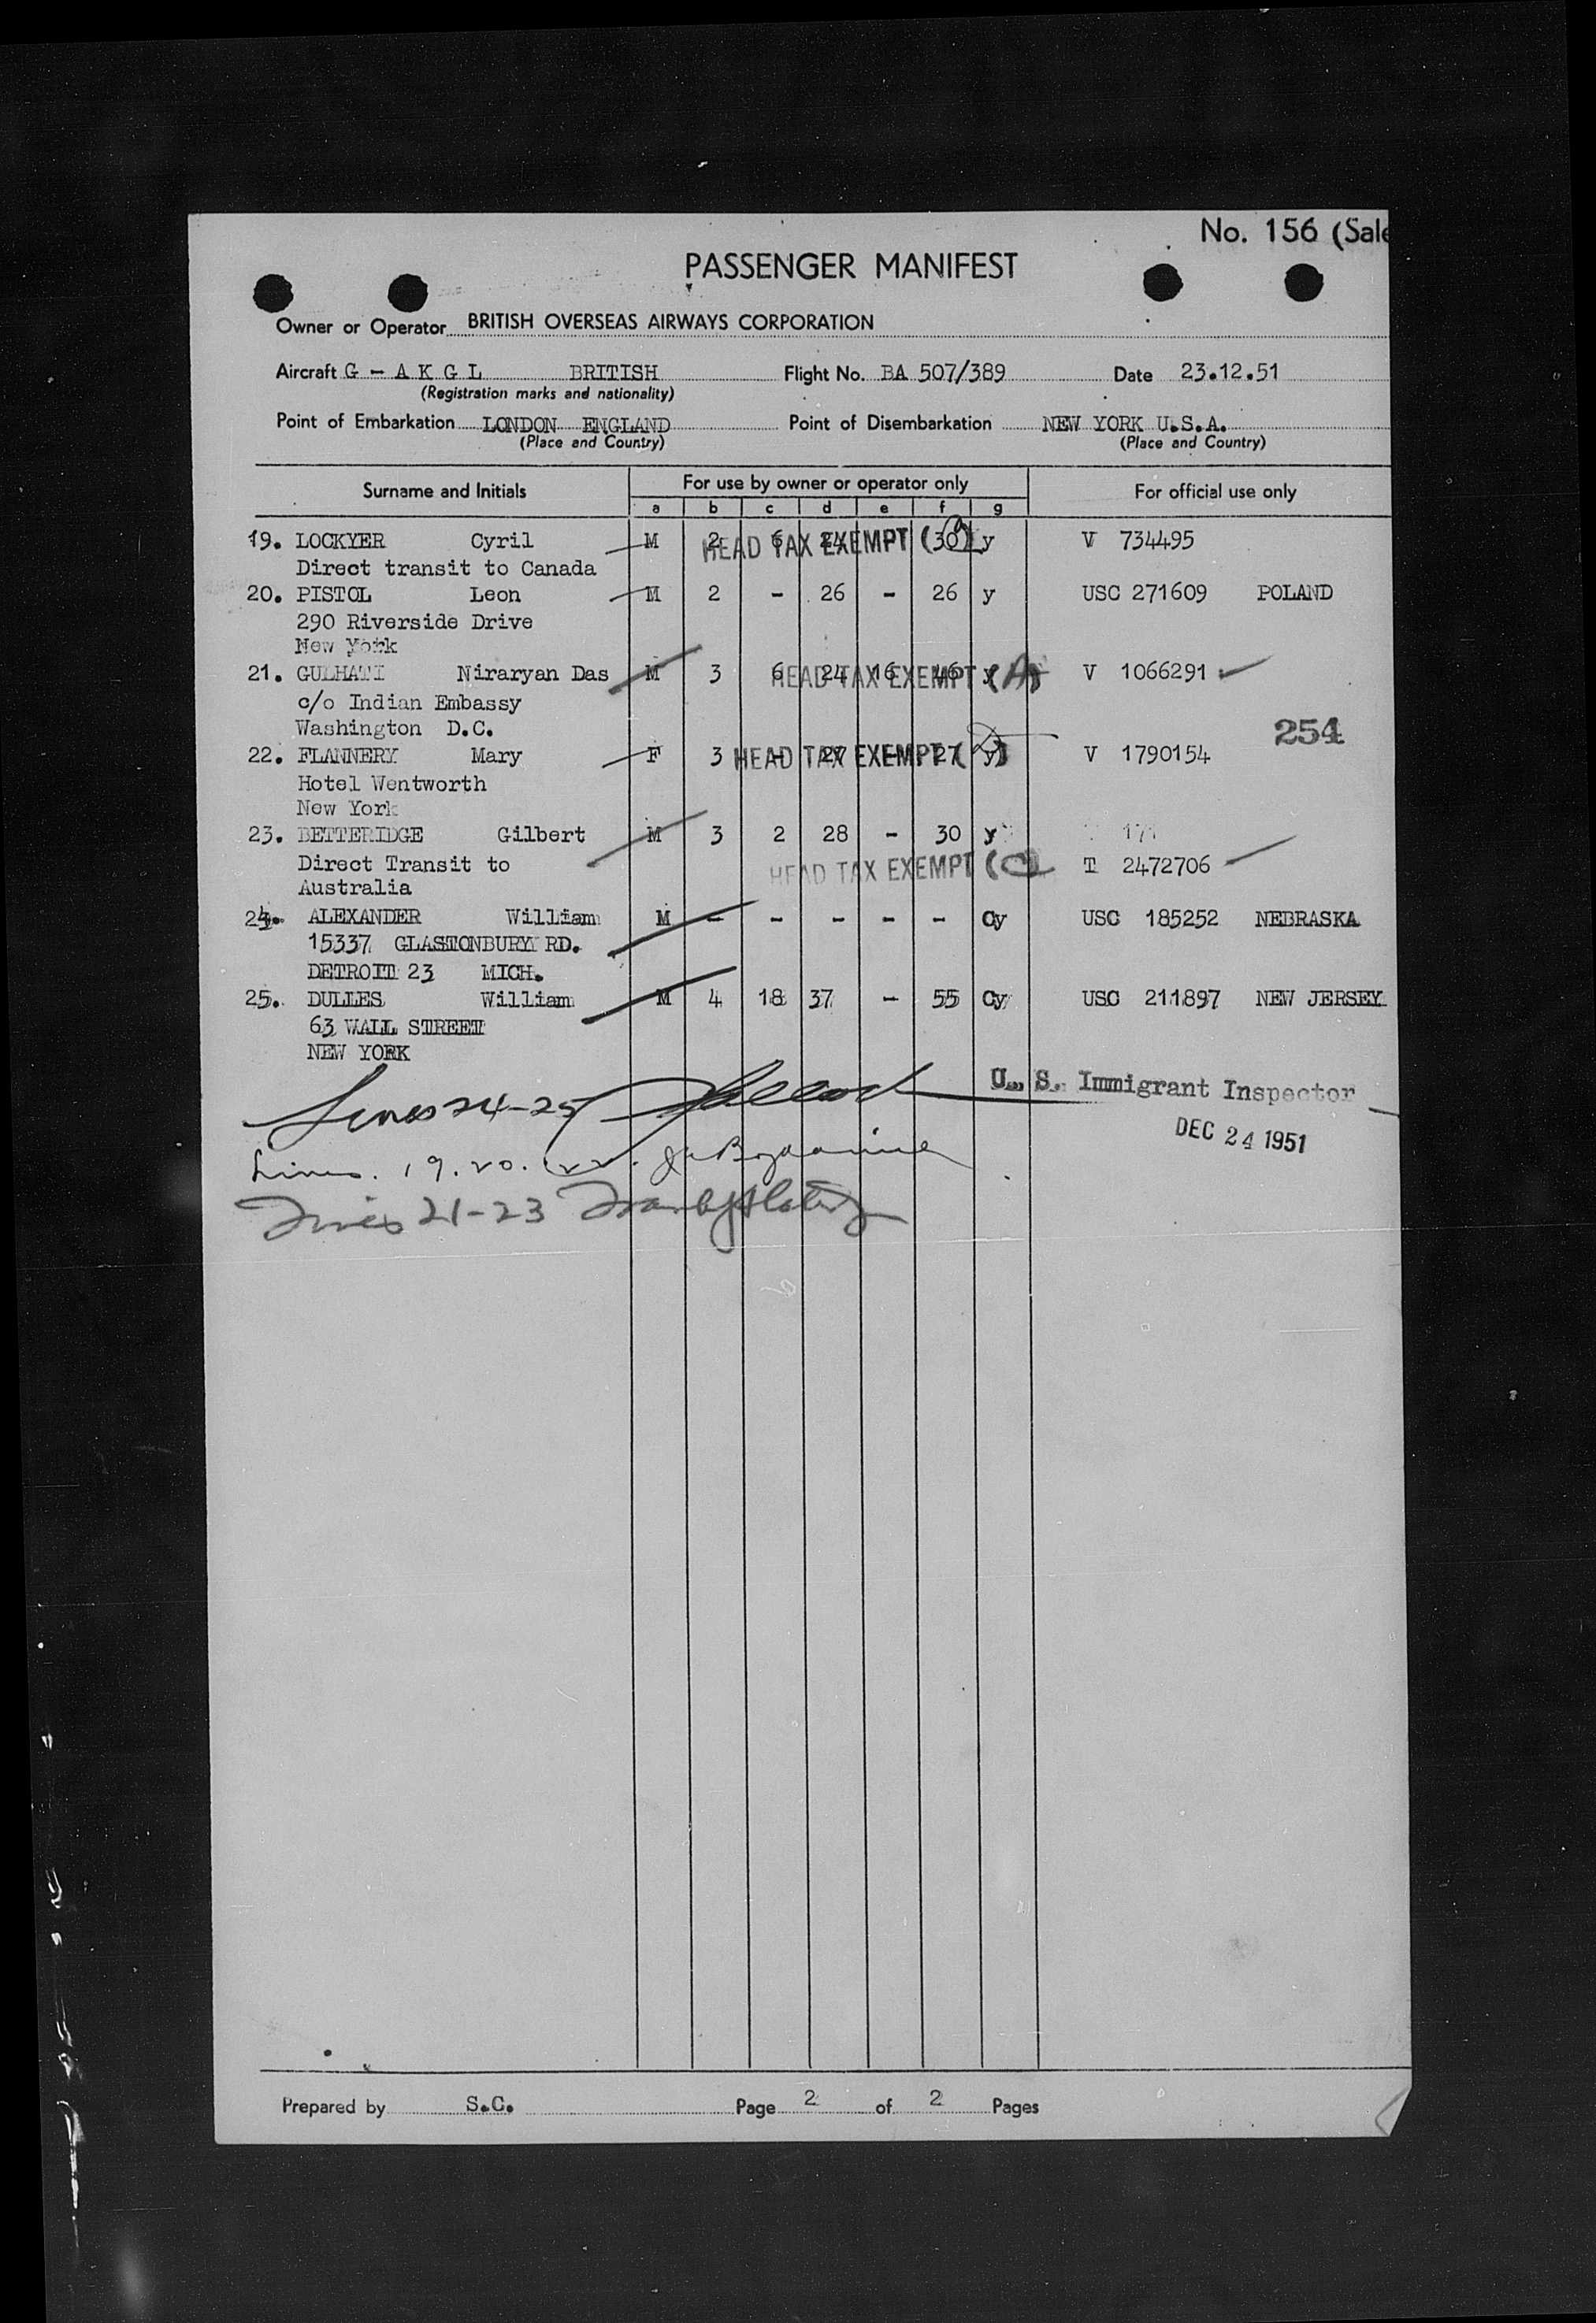 No. 156 (Sale
PASSENGER MANIFEST
Owner or Operator BRITISH OVERSEAS AIRWAYS CORPORATION
Aircraft G - A K G L BRITISH Flight No. BA 507/389 Date 23.12.51
(Registration marks and nationality)
Point of Embarkation LONDON ENGLAND Point of Disembarkation NEW YORK U.S.A.
(Place and Country) (Place and Country)
Surname and Initials For use by owner or operator only For official use only
a b c d e f g
19. LOCKYER Cyril M 2 6 24 30 y V 734495
HEAD TAX EXEMPT (
Direct transit to Canada
20. PISTOL Leon M 2 - 26 - 26 y USC 271609 POLAND
290 Riverside Drive
New York
21. GULHATI Niraryan Das M 3 6 24 16 46 y V 1066291
HEAD TAX EXEMPT (A)
c/o Indian Embassy
Washington D.C.
254
22. FLANNERY Mary F 3 - 27 - 27 y V 1790154
HEAD TAX EXEMPT (
Hotel Wentworth
New York
23. BETTERIDGE Gilbert M 3 2 28 - 30 y 171
Direct Transit to HEAD TAX EXEMPT (C) T 2472706
Australia
24. ALEXANDER William M - - - - - Cy USC 185252 NEBRASKA
15337 GLASTONBURY RD.
DETROIT 23 MICH.
25. DULLES William M 4 18 37 - 55 Cy USC 211897 NEW JERSEY
63 WALL STREET
NEW YORK
Lines 24-25
U. S. Immigrant Inspector
DEC 24 1951
Lines. 19. 20. 22.
Lines 21-23
Prepared by S.C. Page 2 of 2 Pages